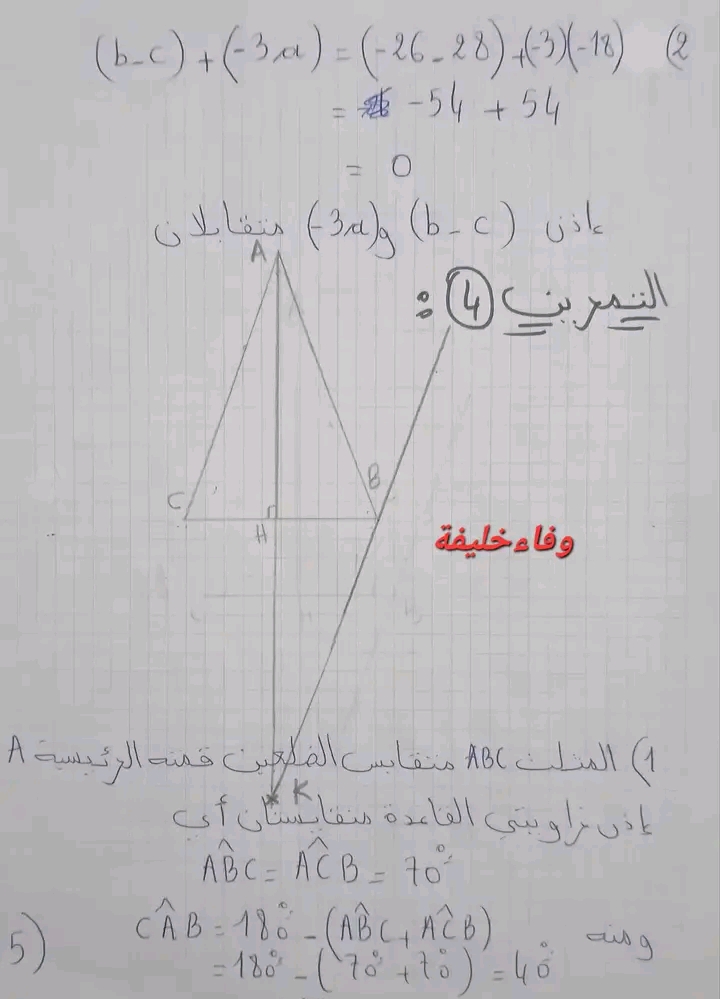 2) (b-c)+(-3a)=(-26-28)+(-3)(-18)
= -54+54
= 0
إذن (b-c) و(-3a) متقابلان
التمرين 4 :
A
B
C
H
وفاء خليفة
K
1) المثلث ABC متقايس الضلعين قمته الرئيسية A
إذن زاويتي القاعدة متقايستان أي
AB̂C = AĈB = 70°
ومنه CÂB = 180° - (AB̂C + AĈB)
= 180° - (70° + 70°) = 40°
5)